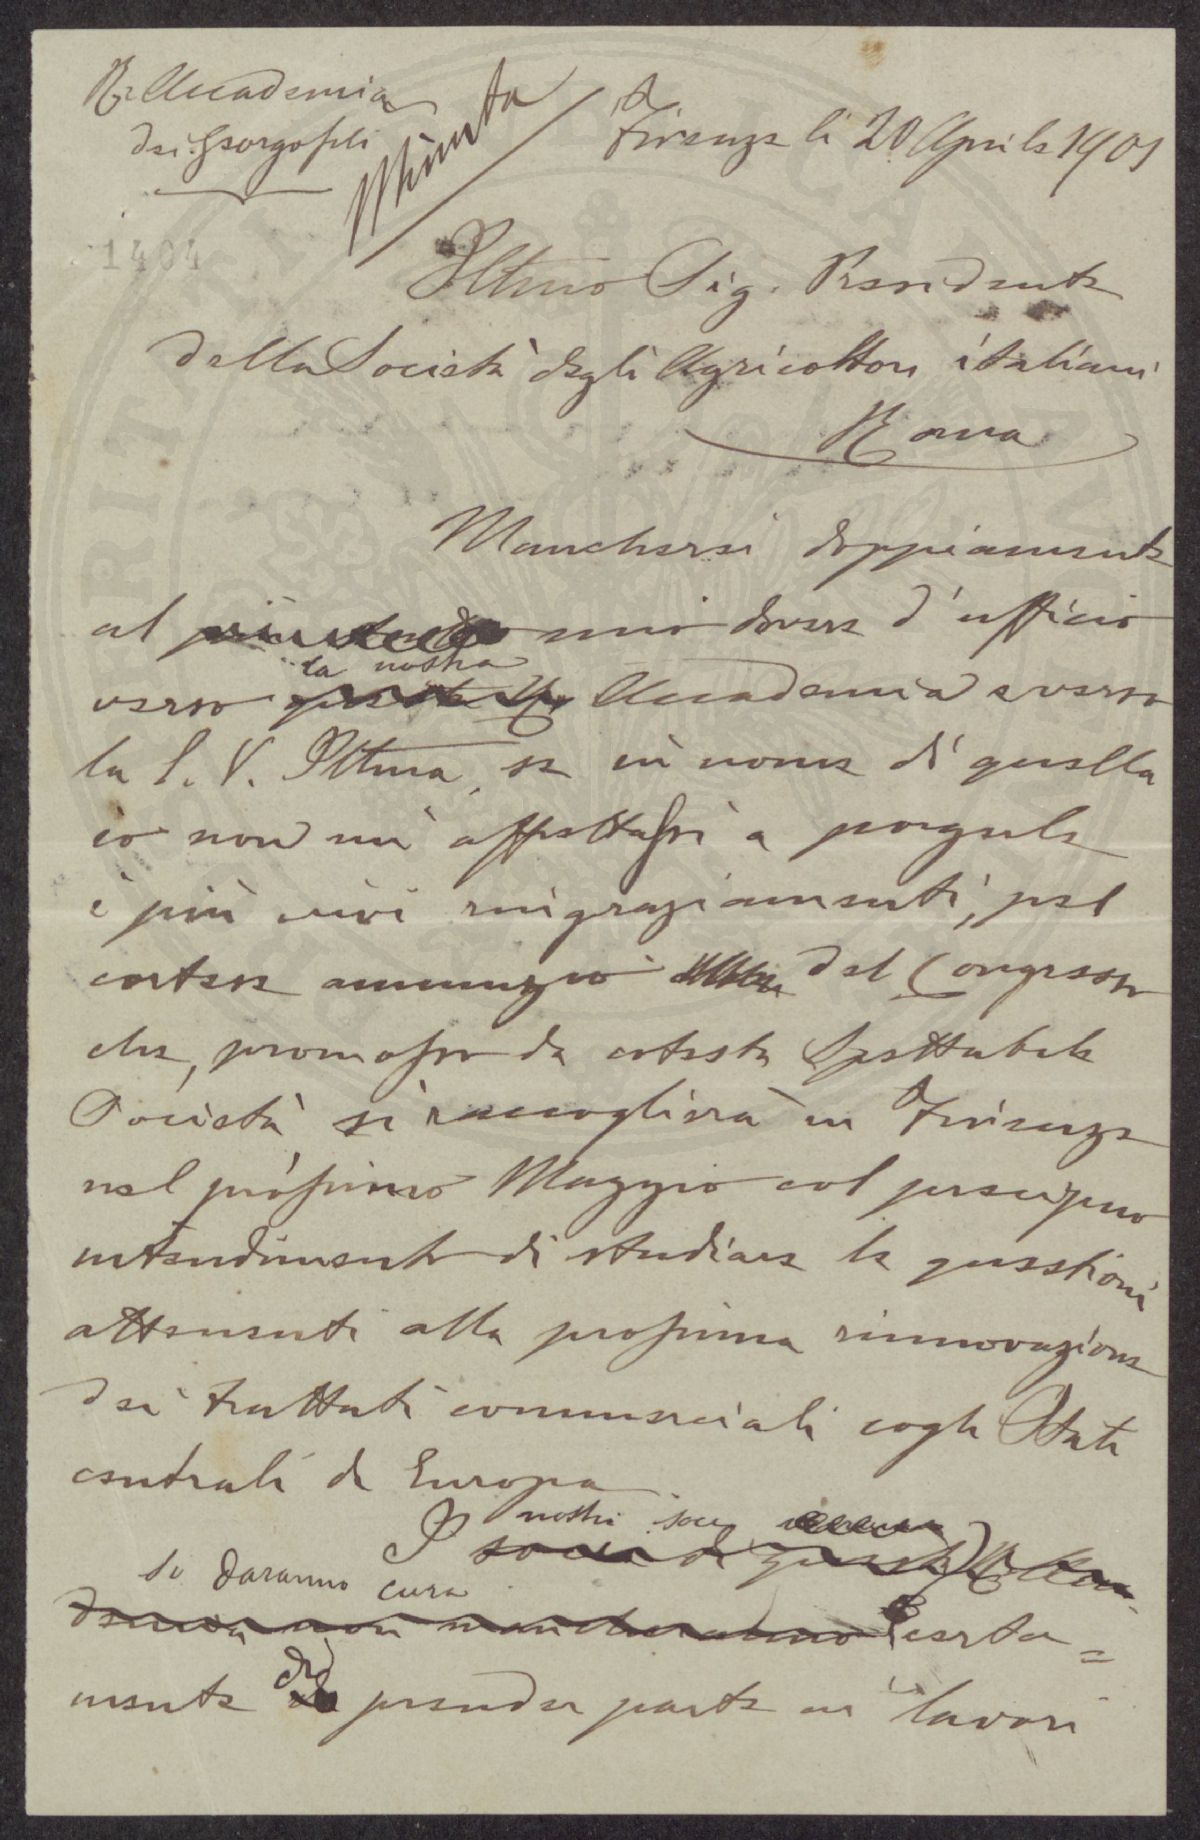 R. Accademia
dei Georgofili
Minuta
Firenze li 20 Aprile 1901
1404
Illmo Sig. Presidente
della Società degli Agricoltori italiani
Roma
Mancherei doppiamente
al mio dovere d'ufficio
la nostra
verso Accademia e verso
la S. V. Illma, se in nome di quella
io non mi affrettassi a porgerle
i più vivi ringraziamenti, pel
cortese annunzio del Congresso
che, promosso da cotesta Spettabile
Società si raccoglierà in Firenze
nel prossimo Maggio col precipuo
intendimento di studiare le questioni
attenenti alla prossima rinnovazione
dei trattati commerciali cogli Stati
centrali di Europa
nostri soci
I soci di questa R. Acca-
si daranno cura
demia non mancheranno certa=
mente di prender parte ai lavori